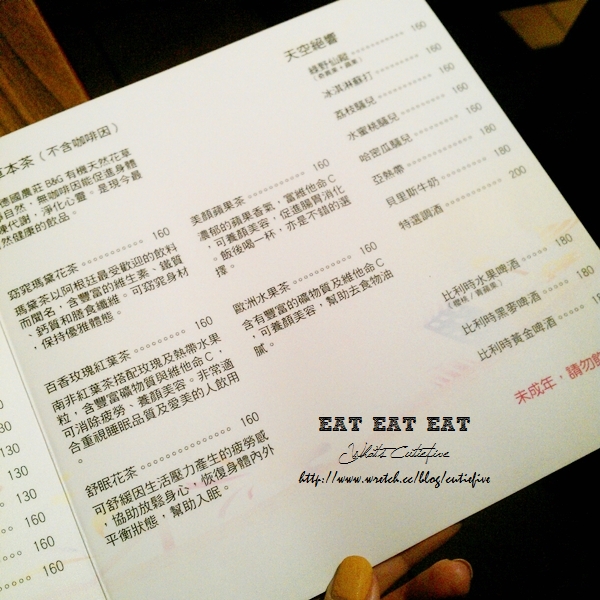 本茶（不含咖啡因）
德國農莊 B&G 有機天然花草
自然，無咖啡因能促進身體
代謝，淨化心靈。是現今最
然健康的飲品。
窈窕瑪黛花茶 160
瑪黛茶以阿根廷最受歡迎的飲料
而聞名，含豐富的維生素、鐵質
、鈣質和膳食纖維。可窈窕身材
，保持優雅體態。
百香玫瑰紅葉茶 160
南非紅葉茶搭配玫瑰及熱帶水果
粒，含豐富礦物質與維他命C，
可消除疲勞、養顏美容。非常適
合重視睡眠品質及愛美的人飲用
。
舒眠花茶 160
可舒緩因生活壓力產生的疲勞感
，協助放鬆身心，恢復身體內外
平衡狀態，幫助入眠。
美顏蘋果茶 160
濃郁的蘋果香氣，富維他命C
，可養顏美容，促進腸胃消化
。飯後喝一杯，亦是不錯的選
擇。
歐洲水果茶 160
含有豐富的礦物質及維他命C
，可養顏美容，幫助去食物油
膩。
天空絕響
綠野仙蹤 160
冰淇淋蘇打 160
荔枝騷兒 160
水蜜桃騷兒 160
哈密瓜騷兒 160
亞熱帶 180
貝里斯牛奶 180
特選調酒 200
比利時水果啤酒 180
比利時黑麥啤酒 180
比利時黃金啤酒 18
未成年，請勿飲
130
130
130
160
160
EAT EAT EAT
What's Cutiefive
http://www.wretch.cc/blog/cutiefive